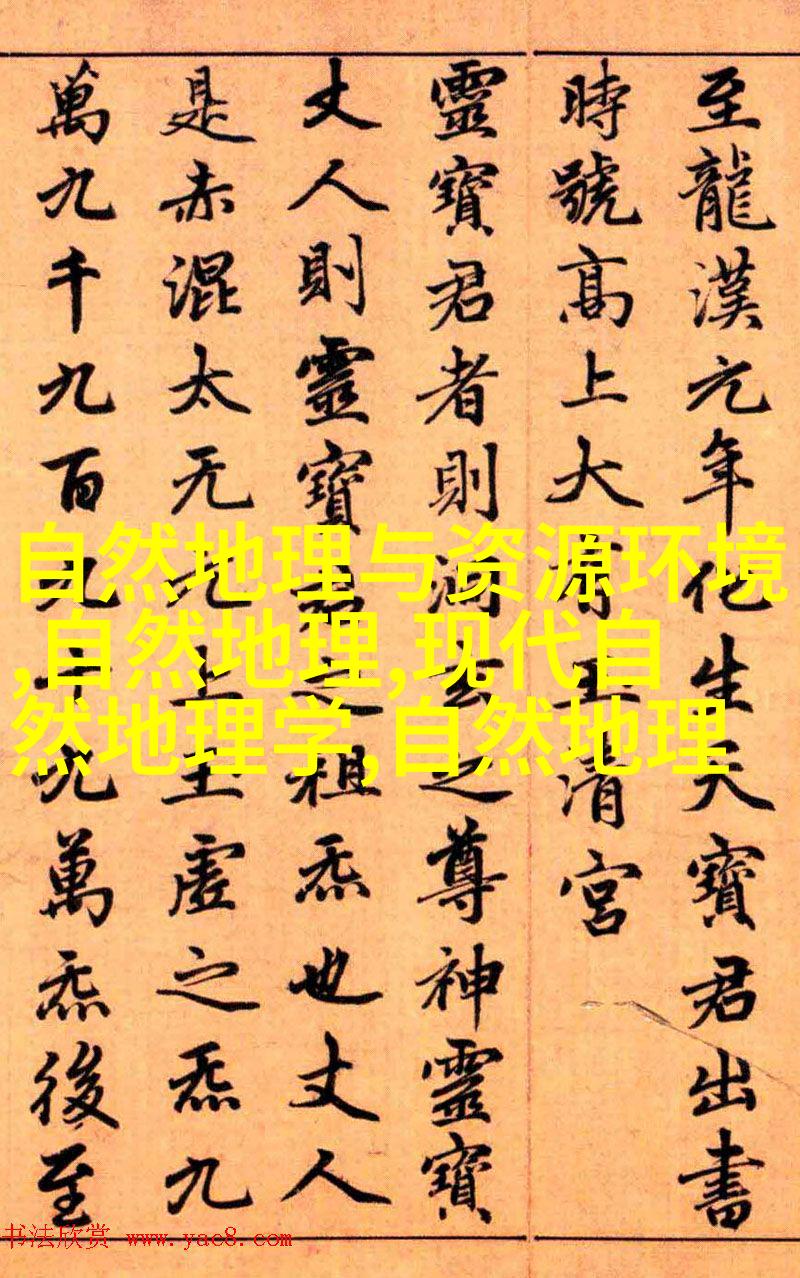 至龍漢元年化生天寶君出書
時號高上大有玉清宮
靈寶君者則洞玄之尊神靈寶
丈人則靈寶君之祖炁也丈人
是赤混太无元上玉虛之炁九
萬九千九百九十九萬炁後至
自然地理与资源环境
,自然地理,现代自
然地理学,自然地理
书法欣赏 www.yac8.com